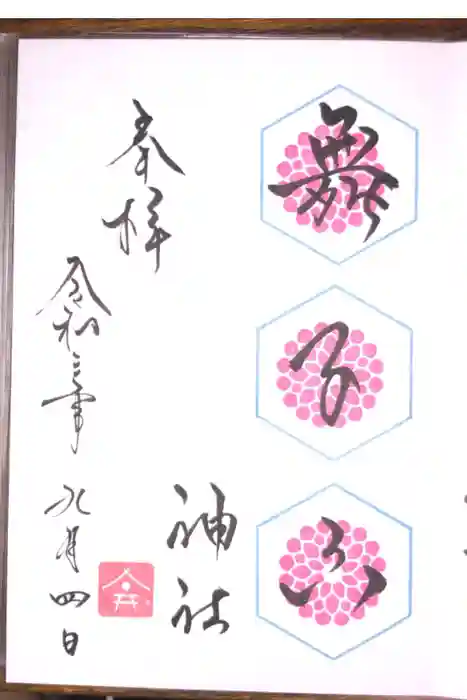 舞子山
神社
奉拝
令和三年
九月四日